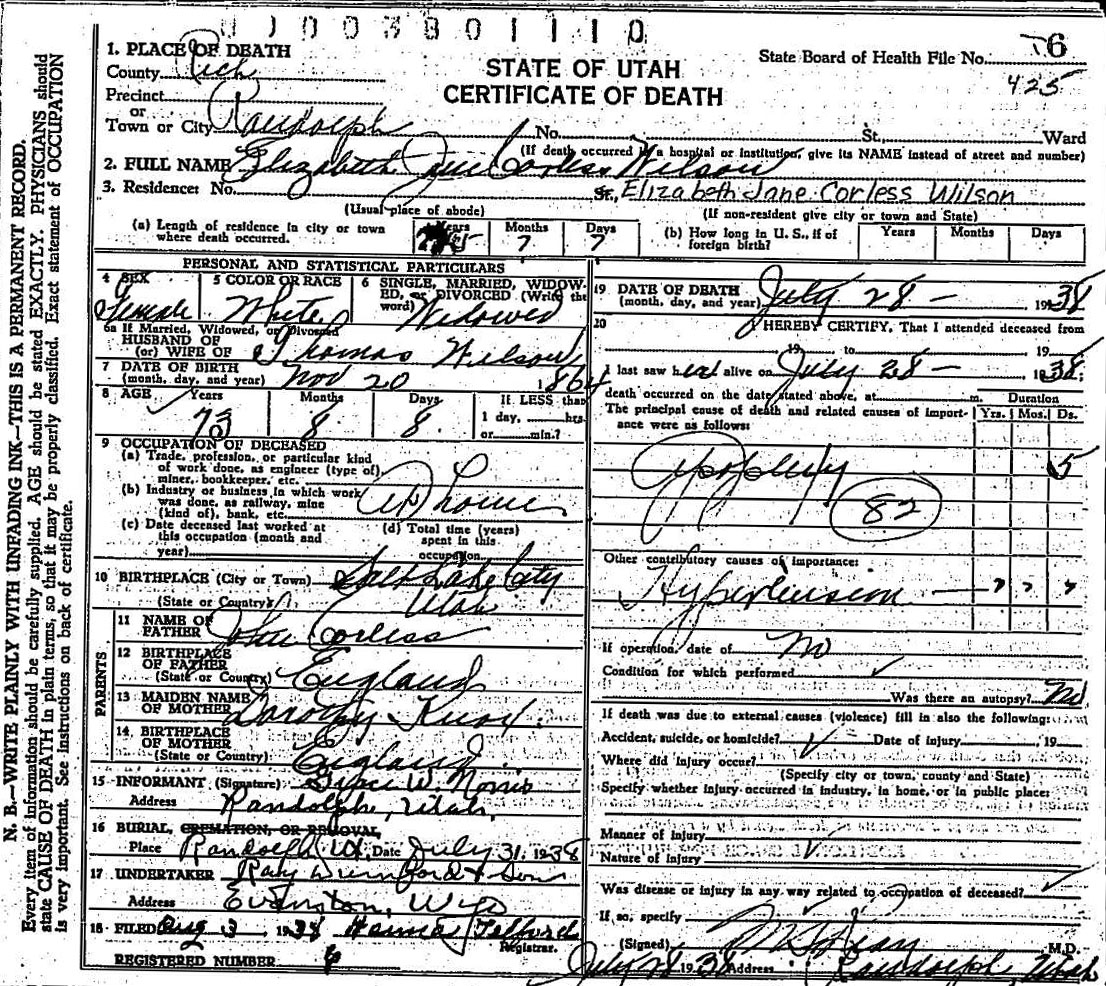 1. PLACE OF DEATH
County Rich
Precinct
or
Town or City Randolph No. St. Ward
STATE OF UTAH
CERTIFICATE OF DEATH
State Board of Health File No. 76
425
(If death occurred in a hospital or institution, give its NAME instead of street and number)
2. FULL NAME Elizabeth Jane Corless Wilson
3. Residence: No. St., Elizabeth Jane Corless Wilson
(Usual place of abode) (If non-resident give city or town and State)
(a) Length of residence in city or town where death occurred. Years Months 7 Days 7
(b) How long in U. S., if of foreign birth? Years Months Days
PERSONAL AND STATISTICAL PARTICULARS
4 SEX Female
5 COLOR OR RACE White
6 SINGLE, MARRIED, WIDOWED, or DIVORCED (Write the word) Widowed
6a If Married, Widowed, or Divorced
HUSBAND OF
(or) WIFE OF Thomas Wilson
7 DATE OF BIRTH
(month, day, and year) Nov 20 1864
8 AGE Years 73 Months 8 Days 8 If LESS than
1 day, hrs.
or min.?
9 OCCUPATION OF DECEASED
(a) Trade, profession, or particular kind
of work done, as engineer (type of),
miner, bookkeeper, etc.
(b) Industry or business in which work
was done, as railway, mine
(kind of), bank, etc. At home
(c) Date deceased last worked at
this occupation (month and
year)
(d) Total time (years)
spent in this
occupation
10 BIRTHPLACE (City or Town) Salt Lake City
(State or Country) Utah
PARENTS
11 NAME OF
FATHER John Corless
12 BIRTHPLACE
OF FATHER
(State or Country) England
13 MAIDEN NAME
OF MOTHER Dorothy
14. BIRTHPLACE
OF MOTHER
(State or Country) England
15 INFORMANT (Signature) Grace W. Norris
Address Randolph, Utah.
16 BURIAL, CREMATION, OR REMOVAL,
Place Randolph Ut. Date July 31, 1938
17 UNDERTAKER & Sons
Address Evanston, Wyo
18 FILED Aug 3, 1938 Telford
Registrar.
REGISTERED NUMBER 6
19 DATE OF DEATH
(month, day, and year) July 28 - 1938
20 I HEREBY CERTIFY, That I attended deceased from
19 to 19
I last saw her alive on July 28 - 1938;
death occurred on the date stated above, at m.
Duration
The principal cause of death and related causes of importance were as follows: Yrs. Mos. Ds.
Apoplexy 5
82
Other contributory causes of importance:
Hypertension - ? ? ?
If operation, date of No
Condition for which performed
Was there an autopsy? No
If death was due to external causes (violence) fill in also the following:
Accident, suicide, or homicide? Date of injury 19
Where did injury occur?
(Specify city or town, county and State)
Specify whether injury occurred in industry, in home, or in public place:
Manner of injury
Nature of injury
Was disease or injury in any way related to occupation of deceased?
If so, specify
(Signed) M.D.
July 28 1938 Address Randolph, Utah
N. B.—WRITE PLAINLY WITH UNFADING INK—THIS IS A PERMANENT RECORD.
Every item of information should be carefully supplied. AGE should be stated EXACTLY. PHYSICIANS should
state CAUSE OF DEATH in plain terms, so that it may be properly classified. Exact statement of OCCUPATION
is very important. See instructions on back of certificate.